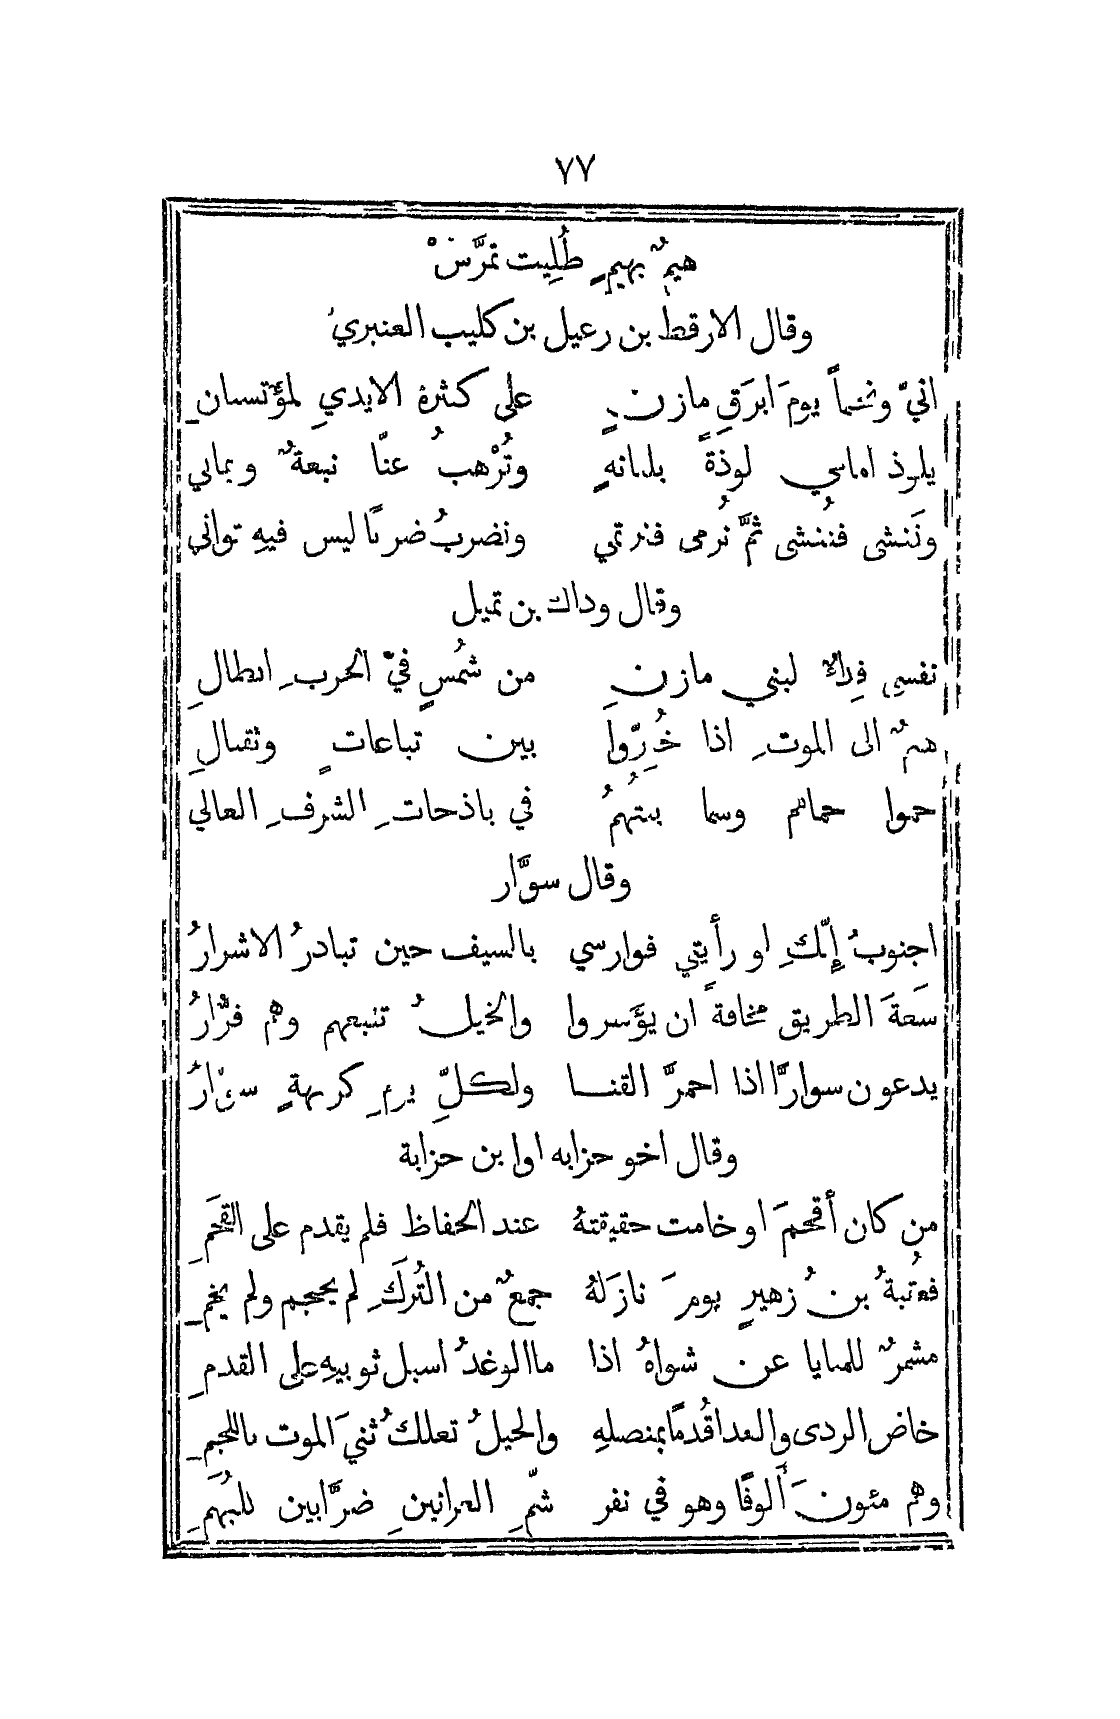 ٧٧
هيمٌ بهيمٍ طُلِيت تمرَّسْ
وقال الارقط بن رعيل بن كليب العنبريُ
انيّ ونجماً يومَ ابرَقِ مازنٍ على كثرة الايدي لمؤتسيان
يلوذ امامي لوذةً بلبانهِ وتُرْهبُ عنّا نبعةٌ ويماني
ونَنشى فنُنشى ثمَّ نُرمى فنرتمي ونضربُ ضربًا ليس فيهِ تواني
وقال وداك بن تميل
نفسي فداءٌ لبني مازنِ من شمُسٍ في الحرب ابطالِ
هيمٌ الى الموتِ اذا خُيِّروا بين تباعاتٍ وتقتالِ
حموا حماهم وسما بيتهُمُ في باذحاتِ الشرفِ العالي
وقال سوَّار
اجنوبُ إنّكِ لو رأيتي فوارسي بالسيف حين تبادرُ الاشرارُ
سَعةَ الطريق مخافةً ان يؤَسروا والخيلُ تتبعهم وهم فرَّارُ
يدعون سوارًا اذا احمرَّ القنا ولكلِّ يومِ كريهةٍ سوَّارُ
وقال اخو حزابه اوا بن حزابة
من كان أقحمَ او خامت حقيقتهُ عند الحفاظ فلم يقدم على القحَمِ
فعُتبةُ بنُ زهيرٍ يومَ نازَلهُ جمعٌ من التُركَِ لم يحجم ولم يخمِ
مشمرٌ للمنايا عن شواهُ اذا ماالوغدُ اسبل ثوبيهِ على القدمِ
خاض الردى والعدا قُدمًا بمنصلهِ والخيلُ تعلكُ ثنيَ الموت باللجمِ
وهم مئونَ أَلوفًا وهو في نفر شمّ العرانينِ ضرَّابين للبُهَمِ